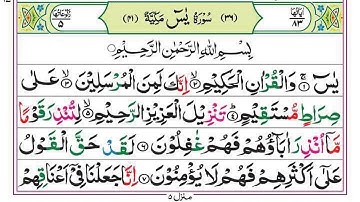 رکوعاتها ٥ (٣٦) سُوْرَةُ يٰسٓ مَكِّيَّةٌ (٤١) اٰیاتها ٨٣
بِسْمِ اللهِ الرَّحْمٰنِ الرَّحِيْمِ
يٰسٓ ۝١ وَالْقُرْاٰنِ الْحَكِيْمِ ۝٢ اِنَّكَ لَمِنَ الْمُرْسَلِيْنَ ۝٣ عَلٰى
صِرَاطٍ مُّسْتَقِيْمٍ ۝٤ تَنْزِيْلَ الْعَزِيْزِ الرَّحِيْمِ ۝٥ لِتُنْذِرَ قَوْمًا
مَّاۤ اُنْذِرَ اٰبَآؤُهُمْ فَهُمْ غٰفِلُوْنَ ۝٦ لَقَدْ حَقَّ الْقَوْلُ
عَلٰۤى اَكْثَرِهِمْ فَهُمْ لَا يُؤْمِنُوْنَ ۝٧ اِنَّا جَعَلْنَا فِيْۤ اَعْنَاقِهِمْ
منزل ٥